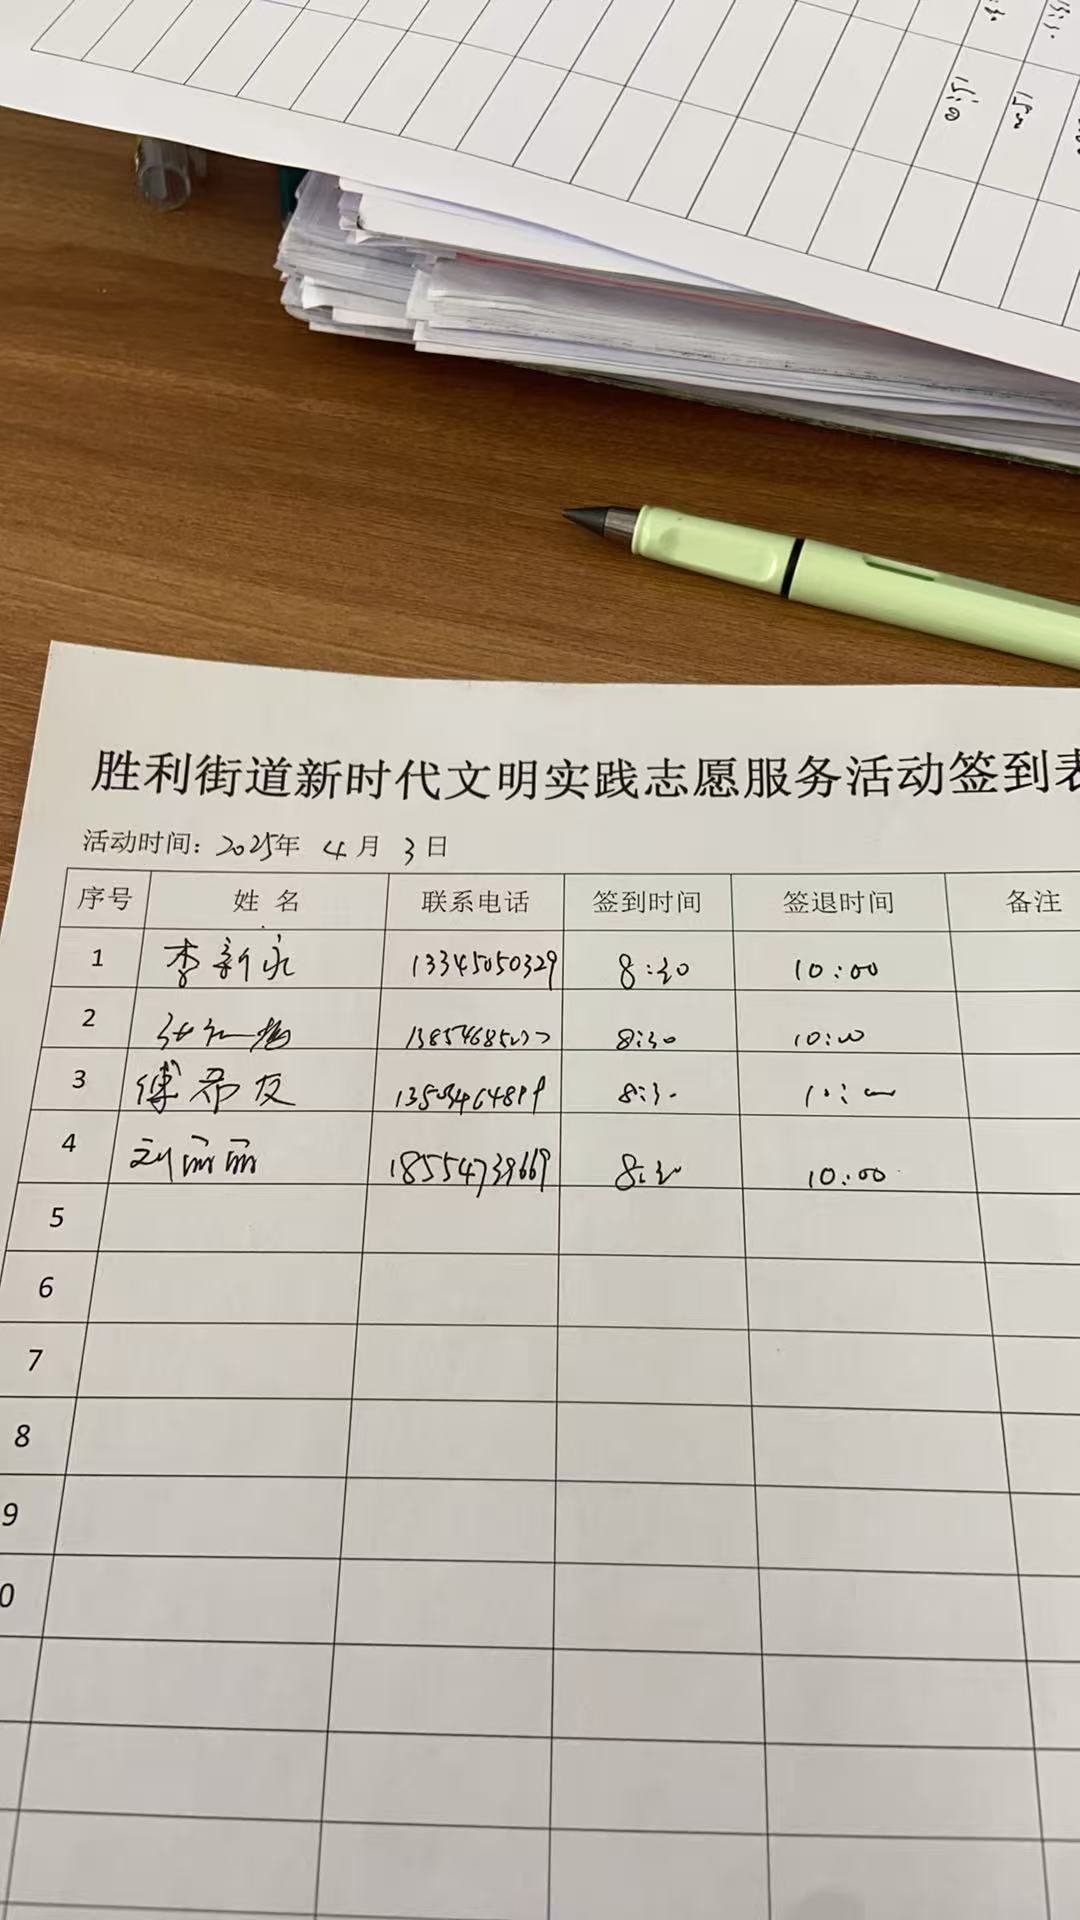 15:00
15:00
胜利街道新时代文明实践志愿服务活动签到表
活动时间：2025年 4月 3日
序号 姓 名 联系电话 签到时间 签退时间 备注
1 李新永 13345050329 8:30 10:00
2 8:30 10:00
3 傅希友 8:30 10:00
4 刘丽丽 18554739669 8:30 10:00
5
6
7
8
9
0